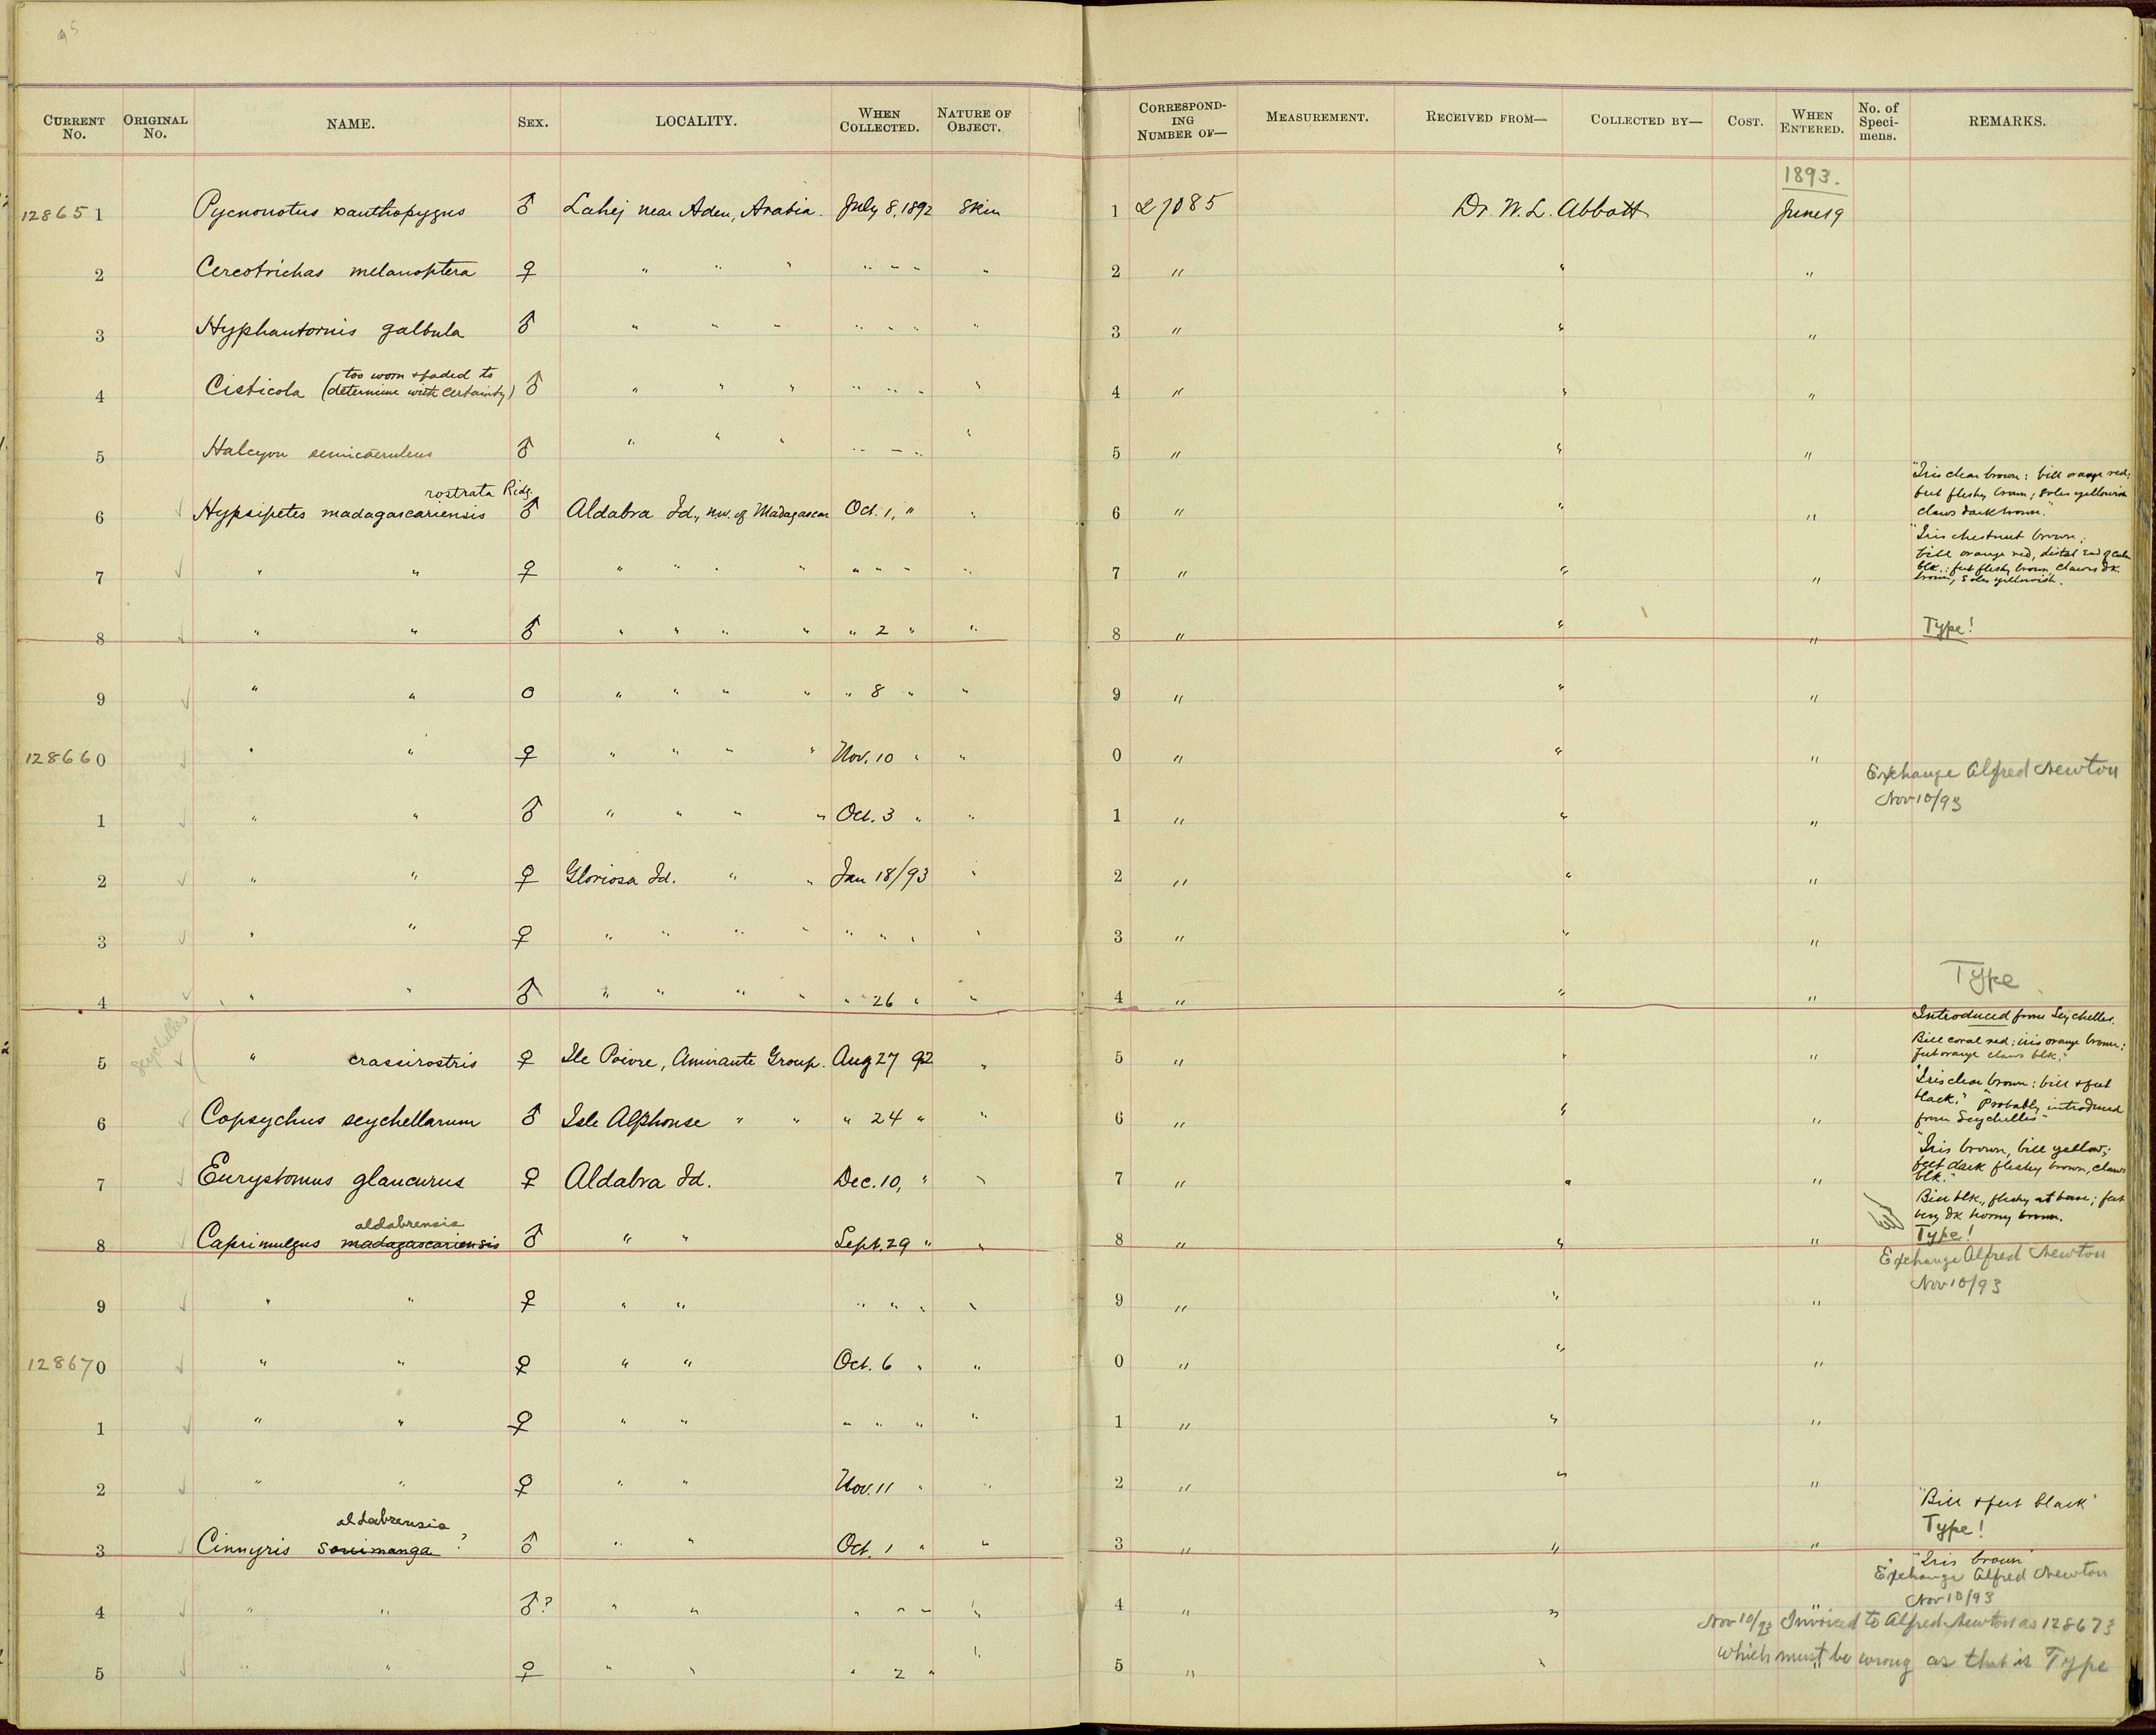 CURRENT No. ORIGINAL No. NAME. SEX. LOCALITY. WHEN COLLECTED. NATURE OF OBJECT. CORRESPONDING NUMBER OF— MEASUREMENT. RECEIVED FROM— COLLECTED BY— COST. WHEN ENTERED. No. of Specimens. REMARKS.
1893.
128651 Pycnonotus xanthopygus ♂ Lahej near Aden, Arabia. July 8, 1892 Skin 1 27085 Dr. W. L. Abbott June 19
2 Cercotrichas melanoptera ♀ " " " " " " " 2 " " "
3 Hyphantornis galbula ♂ " " " " " " " 3 " " "
4 Cisticola (too worn & faded to determine with certainty) ♂ " " " " " " " 4 " " "
5 Halcyon semicaeruleus ♂ " " " " " " " 5 " " "
rostrata Ridg.
6 Hypsipetes madagascariensis ♂ Aldabra Id., nw. of Madagascar Oct. 1, " " 6 " " " "Iris clear brown; bill orange red; feet fleshy brown; soles yellowish claws dark brown."
7 " " ♀ " " " " " " " " 7 " " " "Iris chestnut brown; bill orange red, distal end of culm blk.; feet fleshy brown, claws dk. brown, soles yellowish.
8 " " ♂ " " " " " 2 " " 8 " " " Type!
9 " " O " " " " " 8 " " 9 " " "
128660 " " ♀ " " " " Nov. 10 " " 0 " " "
Exchange Alfred Newton
Nov 10/93
1 " " ♂ " " " " Oct. 3 " " 1 " " "
2 " " ♀ Gloriosa Id. " " Jan 18/93 " 2 " " "
3 " " ♀ " " " " " " " " 3 " " "
4 " " ♂ " " " " " 26 " " 4 " " " Type
Seychelles
5 " crassirostris ♀ Ile Poivre, Amirante Group. Aug 27 92 " 5 " " " Introduced from Seychelles. Bill coral red; iris orange brown; feet orange claws blk."
6 Copsychus seychellarum ♂ Isle Alphonse " " " 24 " " 6 " " " "Iris clear brown; bill & feet black." "Probably introduced from Seychelles"
7 Eurystomus glaucurus ♀ Aldabra Id. Dec. 10, " " 7 " " " "Iris brown, bill yellow; feet dark fleshy brown, claws blk."
aldabrensis
8 Caprimulgus madagascariensis ♂ " " Sept. 29 " " 8 " " " Bill blk., fleshy at base; feet very dk horny brown. Type!
Exchange Alfred Newton
Nov 10/93
9 " " ♀ " " " " " " 9 " " "
128670 " " ♀ " " Oct. 6 " " 0 " " "
1 " " ♀ " " " " " " 1 " " "
2 " " ♀ " " Nov. 11 " " 2 " " "
aldabrensis
3 Cinnyris souimanga ? ♂ " " Oct. 1 " " 3 " " " "Bill & feet black" Type!
"Iris brown"
Exchange Alfred Newton
Nov 10/93
4 " " ♂? " " " " " " 4 " " "
Nov 10/93 Invoiced to Alfred Newton as 128673
which must be wrong as that is Type
5 " " ♀ " " " 2 " " 5 " " "